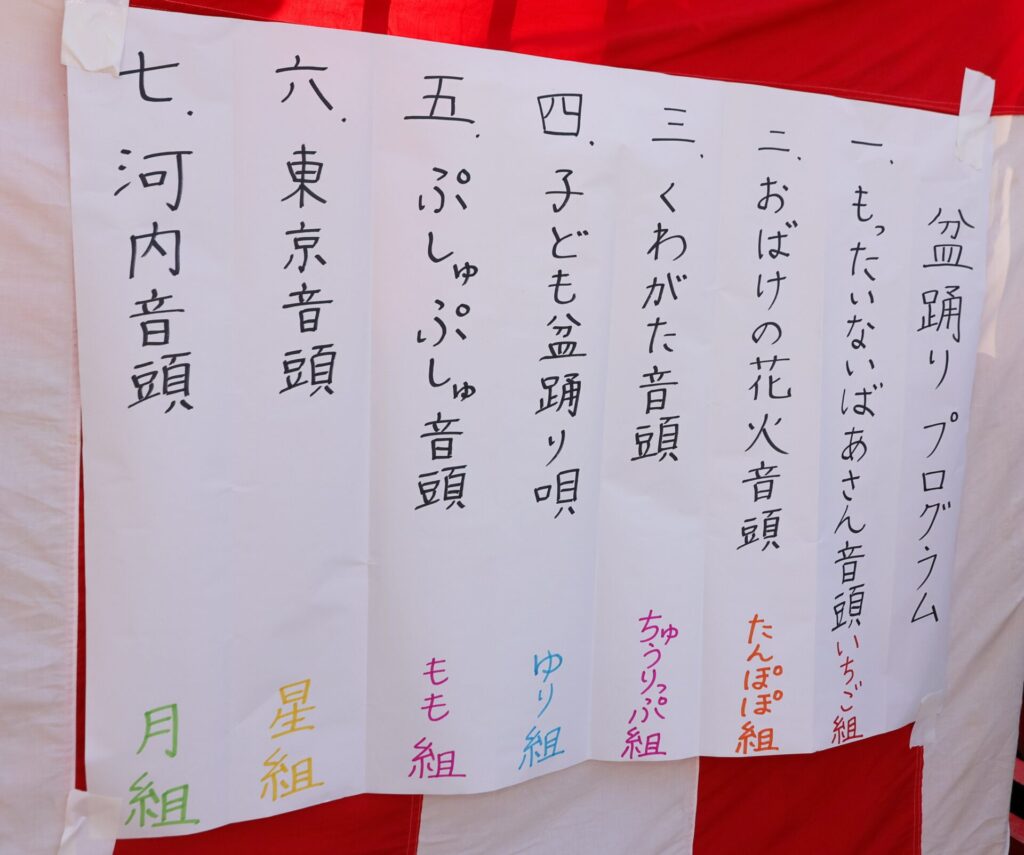 盆踊りプログラム
一、もったいないばあさん音頭 いちご組
二、おばけの花火音頭 たんぽぽ組
三、くわがた音頭 ちゅうりっぷ組
四、子ども盆踊り唄 ゆり組
五、ぷしゅぷしゅ音頭 もも組
六、東京音頭 星組
七、河内音頭 月組